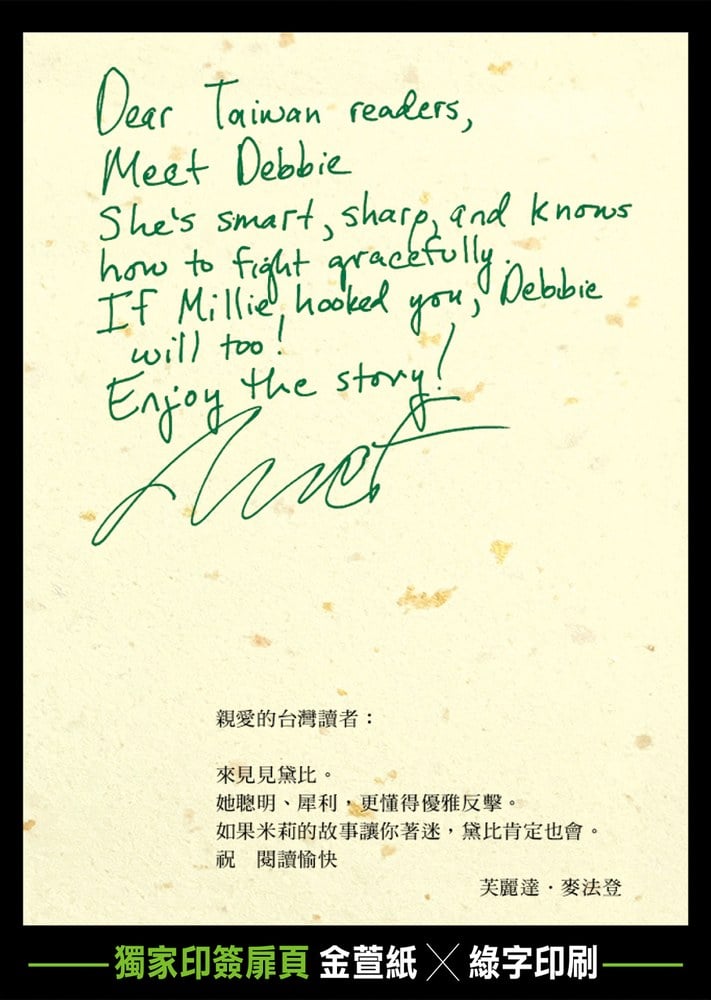 Dear Taiwan readers,
Meet Debbie
She's smart, sharp, and knows
how to fight gracefully.
If Millie hooked you, Debbie
will too!
Enjoy the story!
親愛的台灣讀者：
來見見黛比。
她聰明、犀利，更懂得優雅反擊。
如果米莉的故事讓你著迷，黛比肯定也會。
祝　閱讀愉快
芙麗達．麥法登
獨家印簽扉頁 金萱紙╳綠字印刷